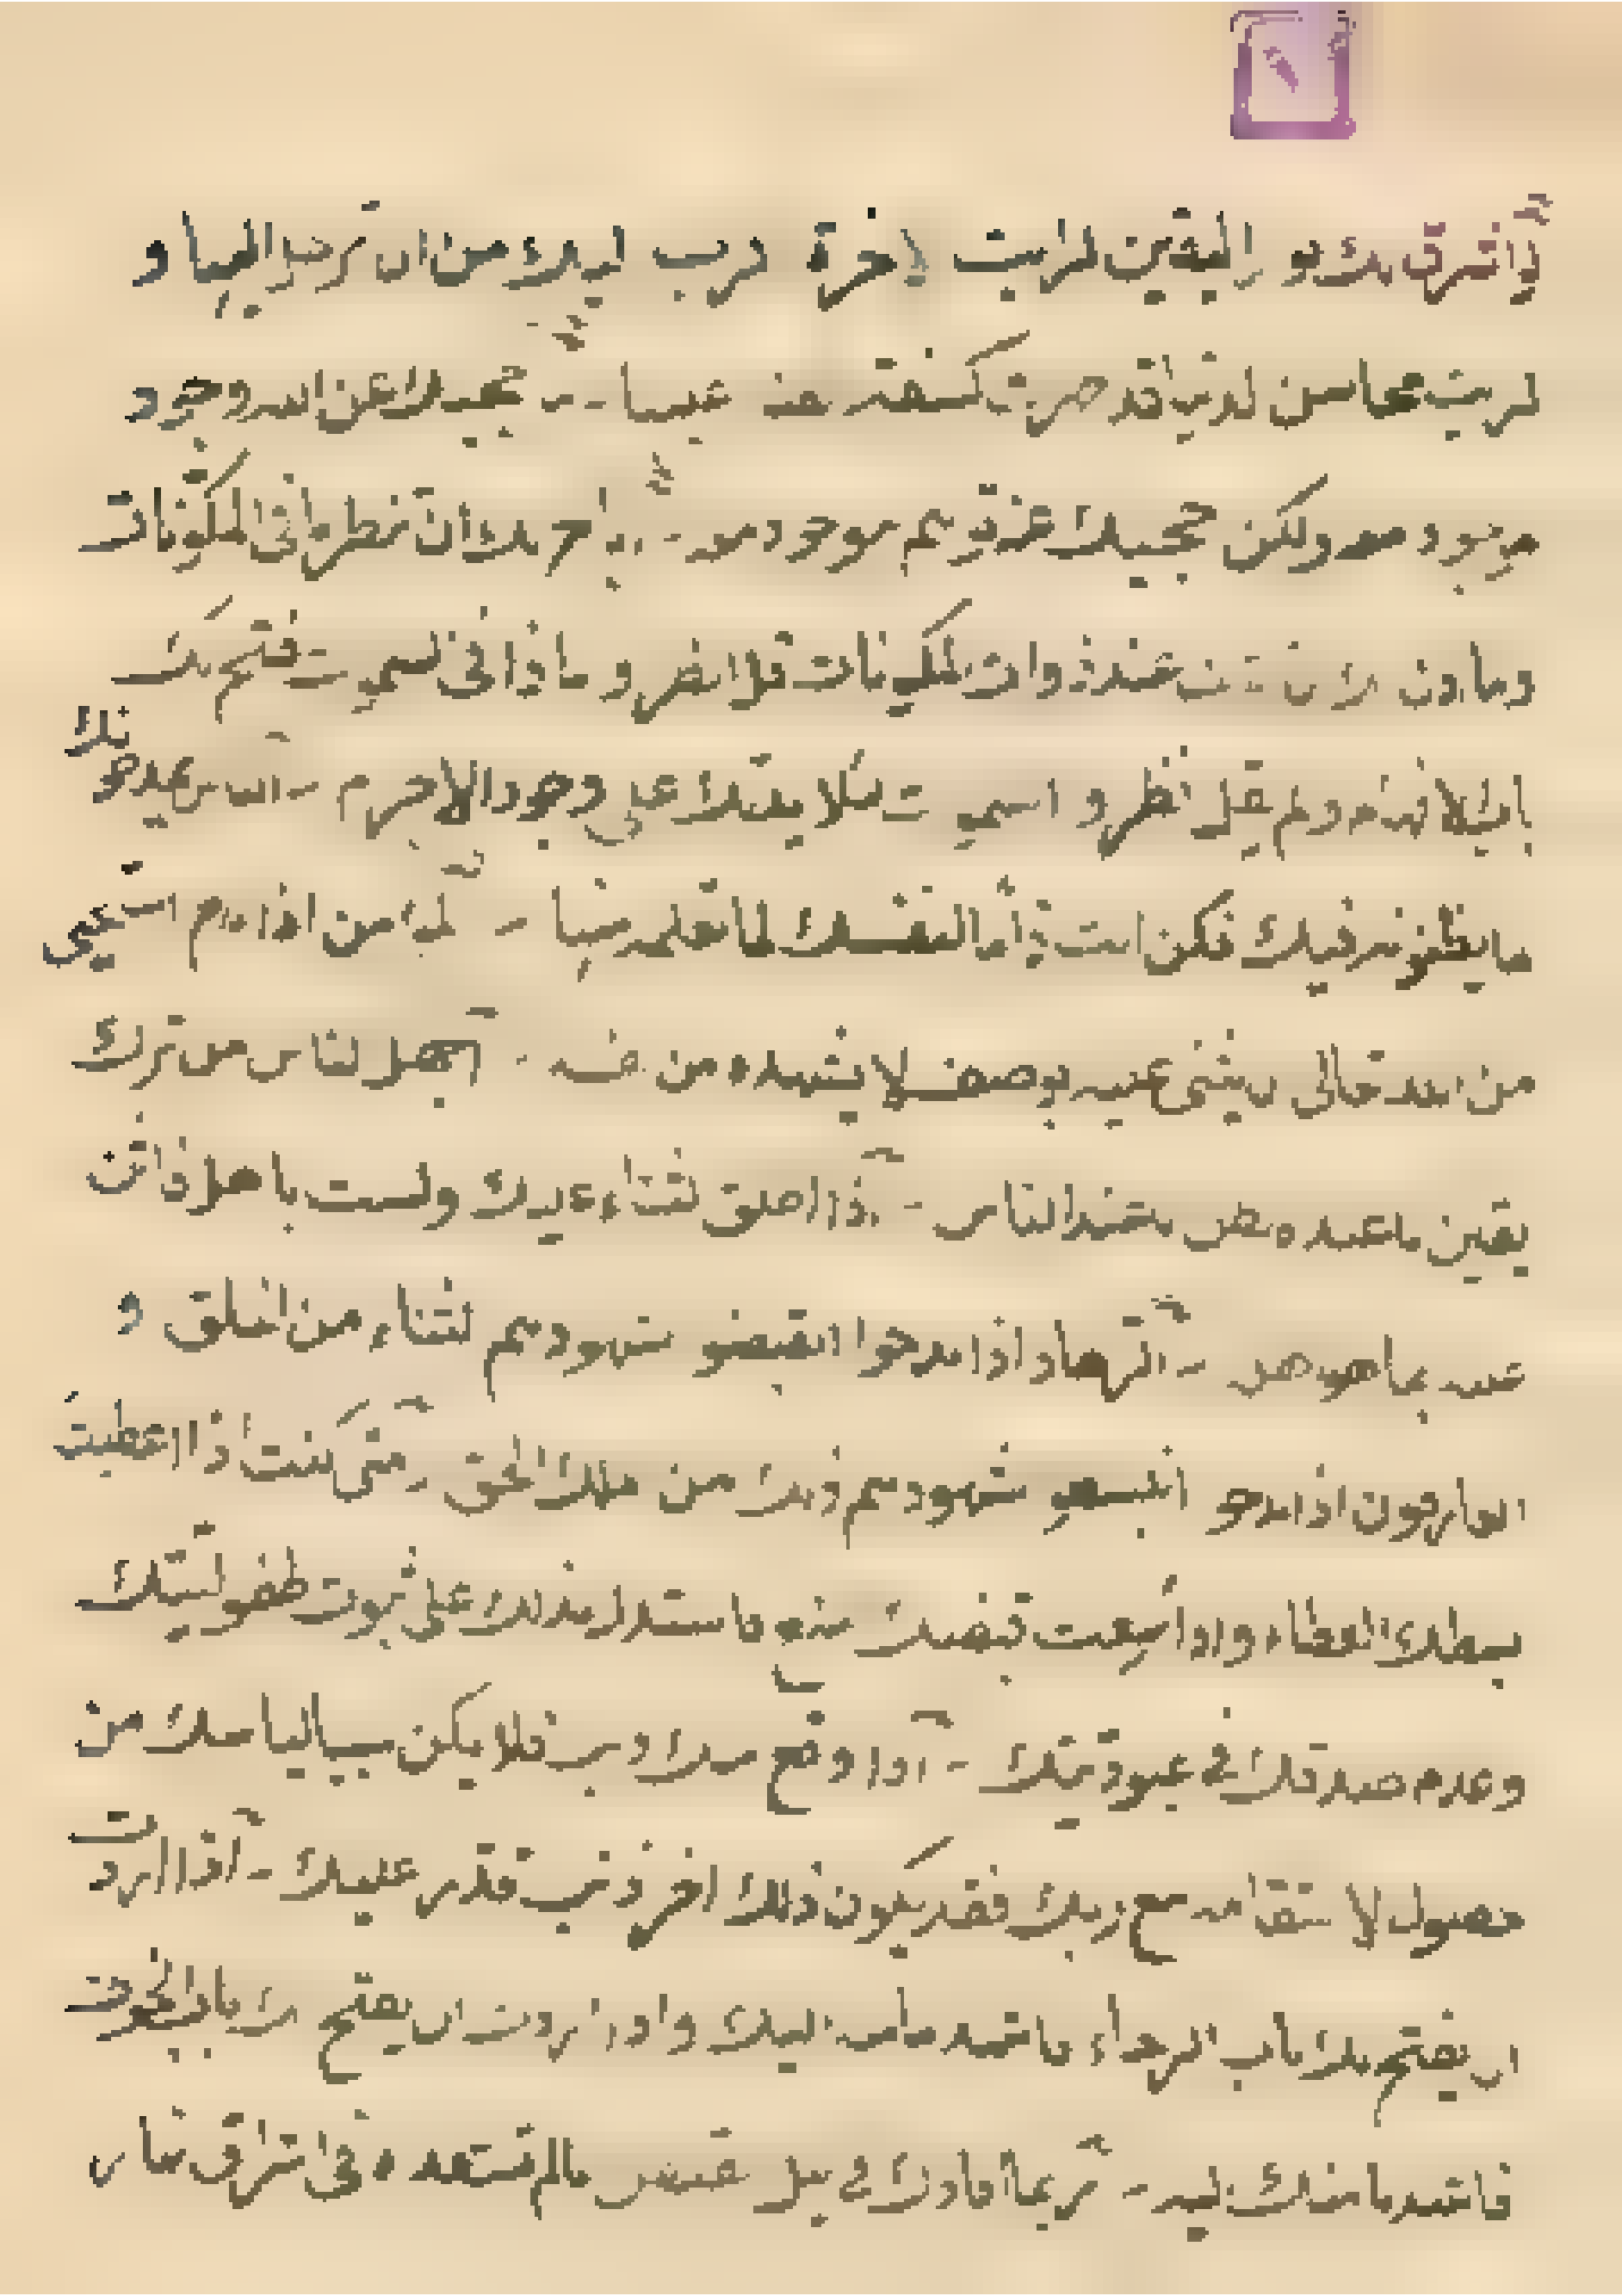 لو اشرق لك نور اليقين لرايت الاخرة اقرب اليك من ان ترحل اليها و
لرايت محاسن الدنيا قد ظهرت كسفة الفناء عليها ما حجبك عن الله وجود
موجود معه ولكن حجبك عنه توهم موجود معه اباح لك ان تنظر ما فى المكونات
وما اذن لك ان تقف عند ذوات المكونات قل انظروا ماذا فى السموات فتح لك
باب الافهام ولم يقل انظروا السموات لئلا يدلك على وجود الاجرام الناس يمدحونك
ما يظنونه فيك فكن انت ذاما لنفسك لما تعلمه منها المؤمن اذا مدح استحيى
من الله تعالى ان يثنى عليه بوصف لا يشهده من نفسه اجهل الناس من ترك
يقين ما عنده لظن ما عند الناس اذا اطلق الثناء عليك ولست باهل فاثن
عليه بما هو اهله الزهاد اذا مدحوا انقبضوا لشهودهم الثناء من الخلق و
العارفون اذا مدحوا انبسطوا لشهودهم ذلك من الملك الحق متى كنت اذا اعطيت
بسطك العطاء واذا منعت قبضك المنع فاستدل بذلك على ثبوت طفوليتك
وعدم صدقك فى عبوديتك اذا وقع منك ذنب فلا يكن سببا لياسك من
حصول الاستقامة مع ربك فقد يكون ذلك اخر ذنب قدر عليك اذا اردت
ان يفتح لك باب الرجاء فاشهد ما منه اليك واذا اردت ان يفتح لك باب الخوف
فاشهد ما منك اليه ربما افادك فى ليل القبض ما لم تستفده فى اشراق نهار